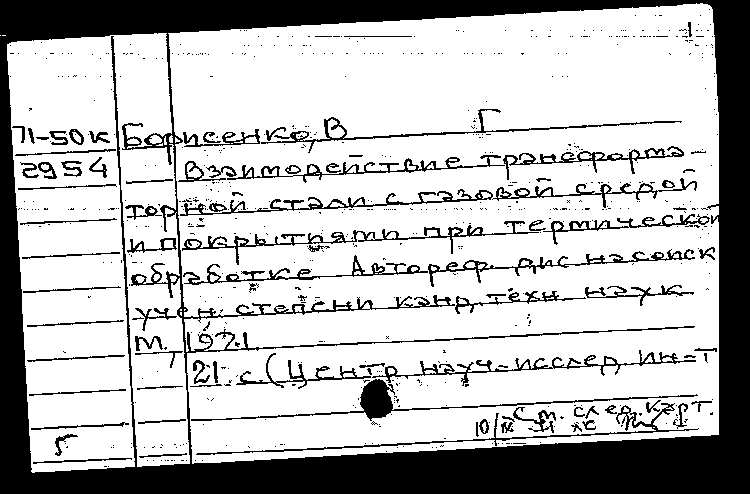 1
71-50к Борисенко, В Г
2954 Взаимодействие трансформа-
торной стали с газовой средой
и покрытиями при термической
обработке Автореф. дис на соиск
учен. степени канд. техн. наук
М., 1971.
21 с. (Центр. науч-исслед. ин-т
См. след. карт.
10/IX
Б